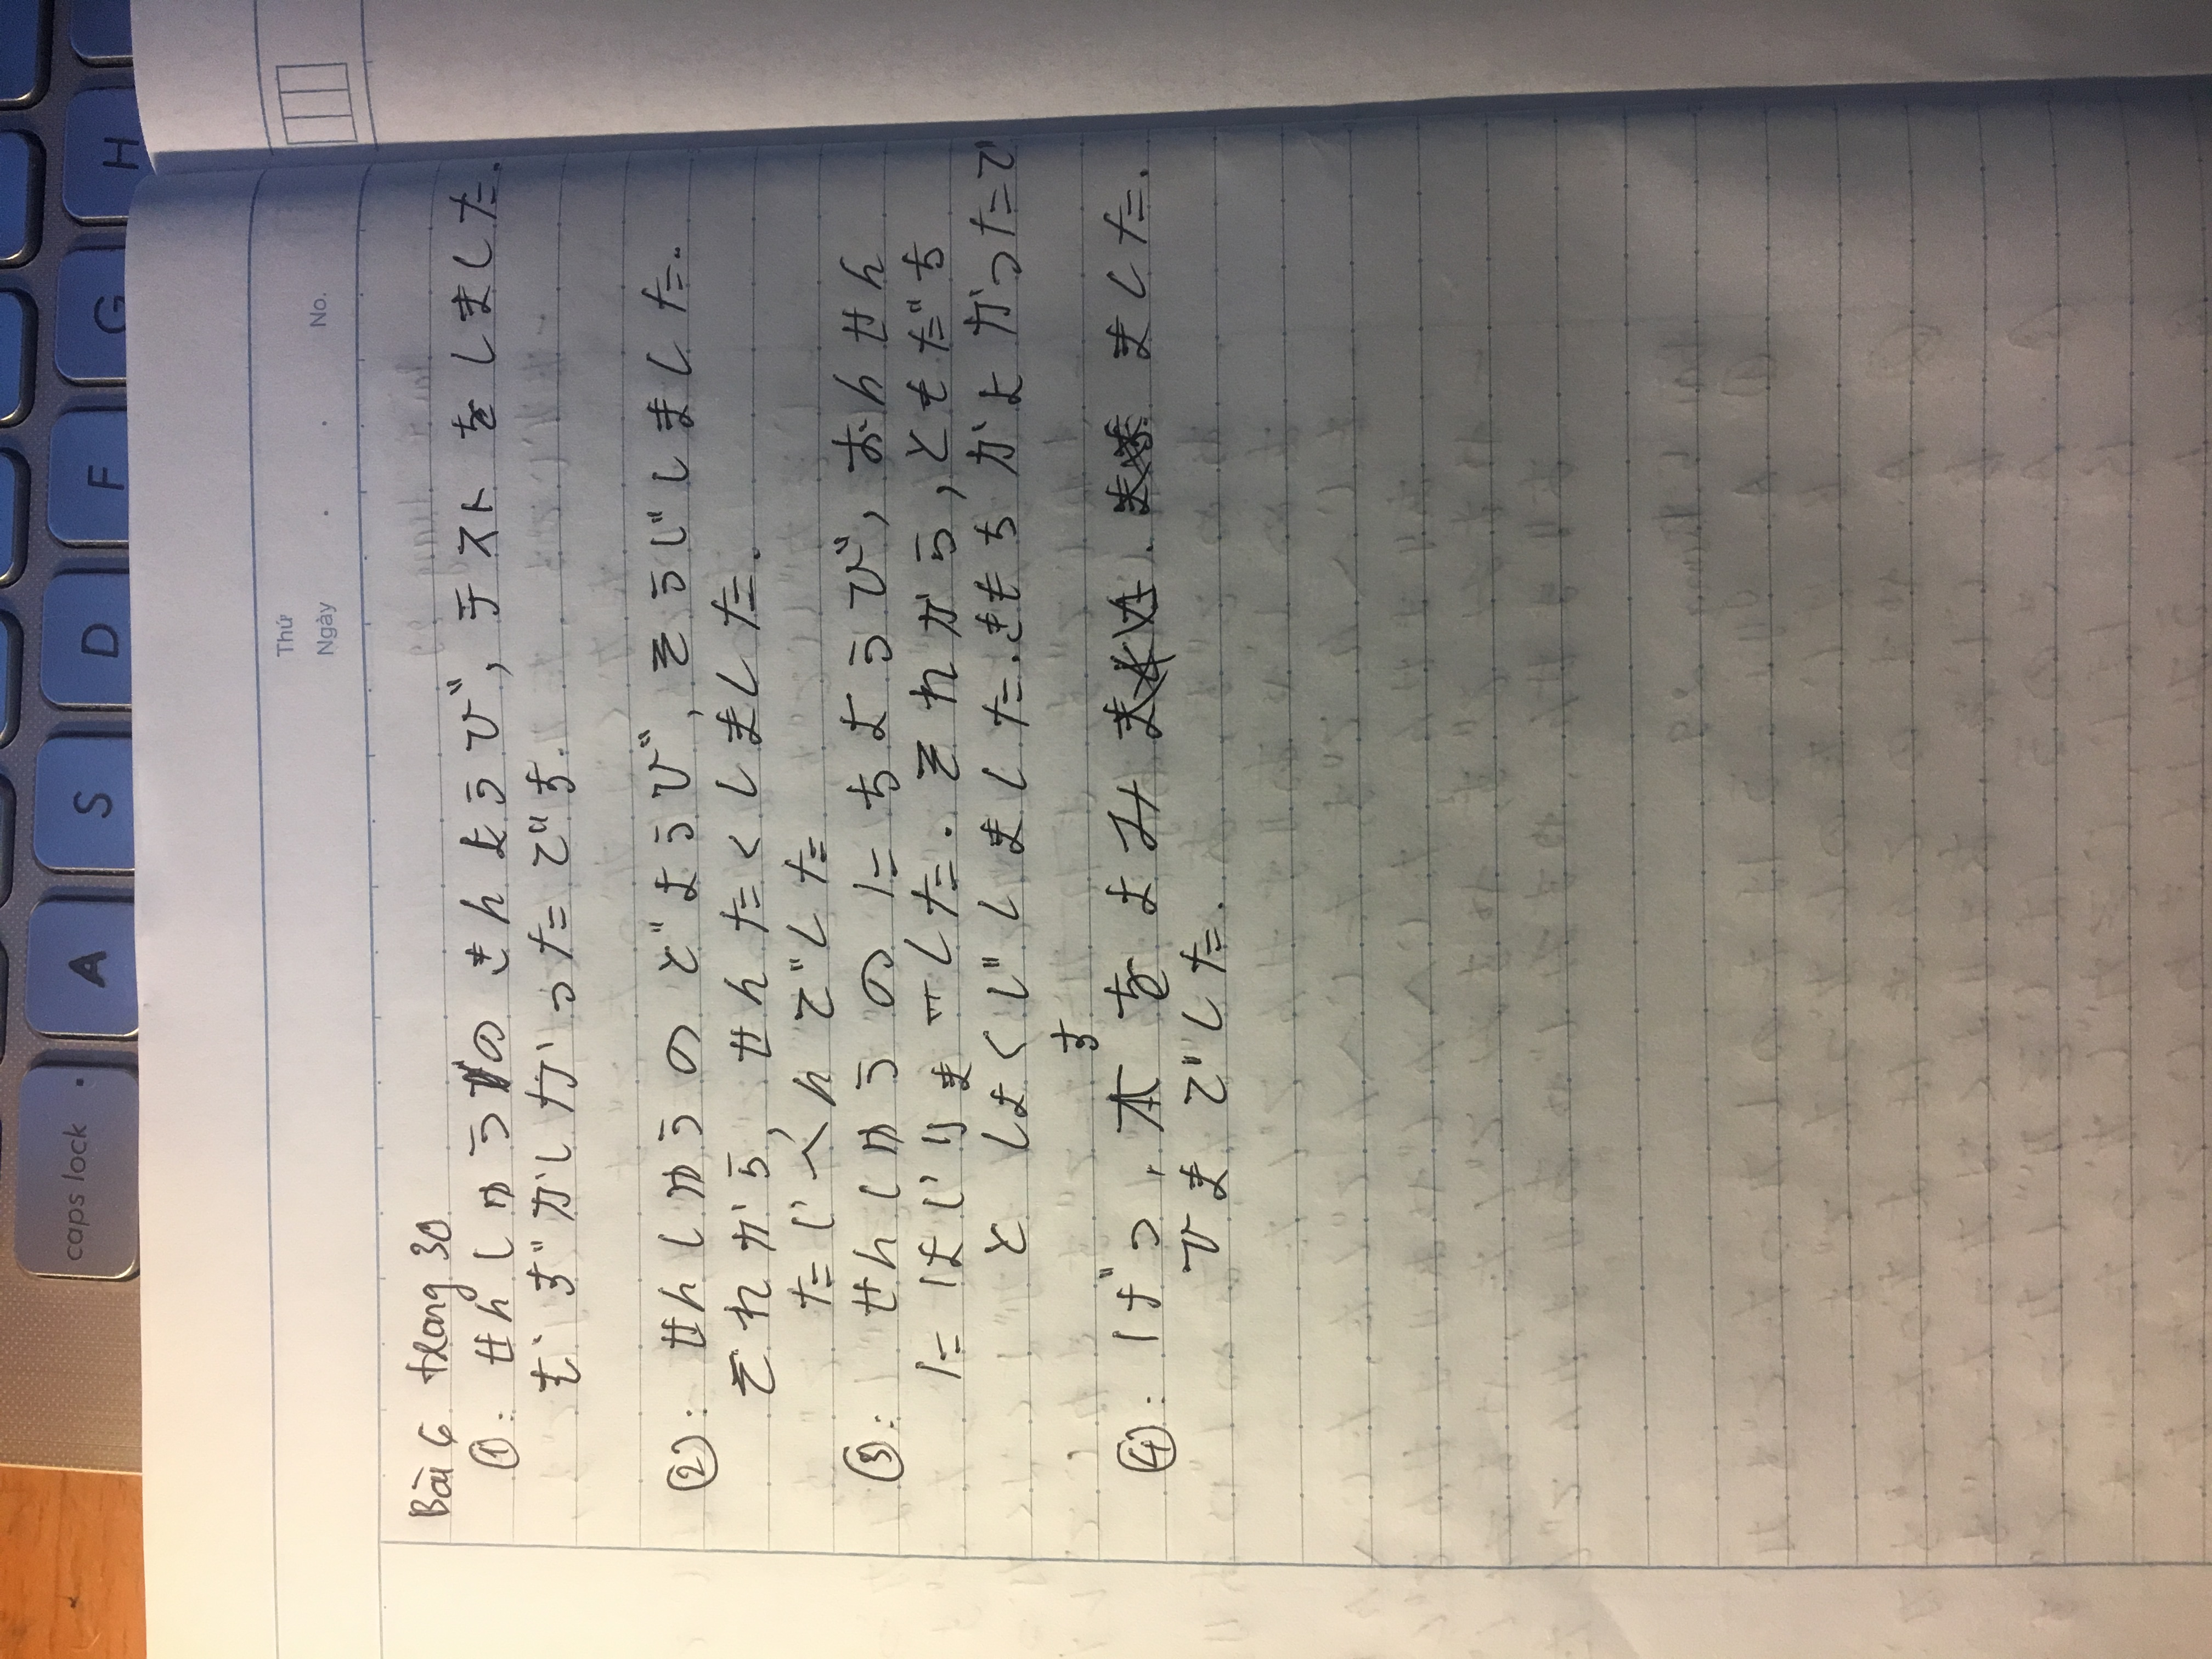 caps lock A S D F G H
Thứ
Ngày . . No.
Bài 6 trang 30
①: せんしゅうの きんようび, テストをしました.
むずかしかったです.
②: せんしゅうの どようび, そうじしました.
それから, せんたくしました.
たじへんでした
③: せんしゅうのにちようび, おんせん
にはじりました. それから, ともだち
と しょくじしました. きもちがよかったで
す
④: げつ, 本をよみ ました.
ひまでした.